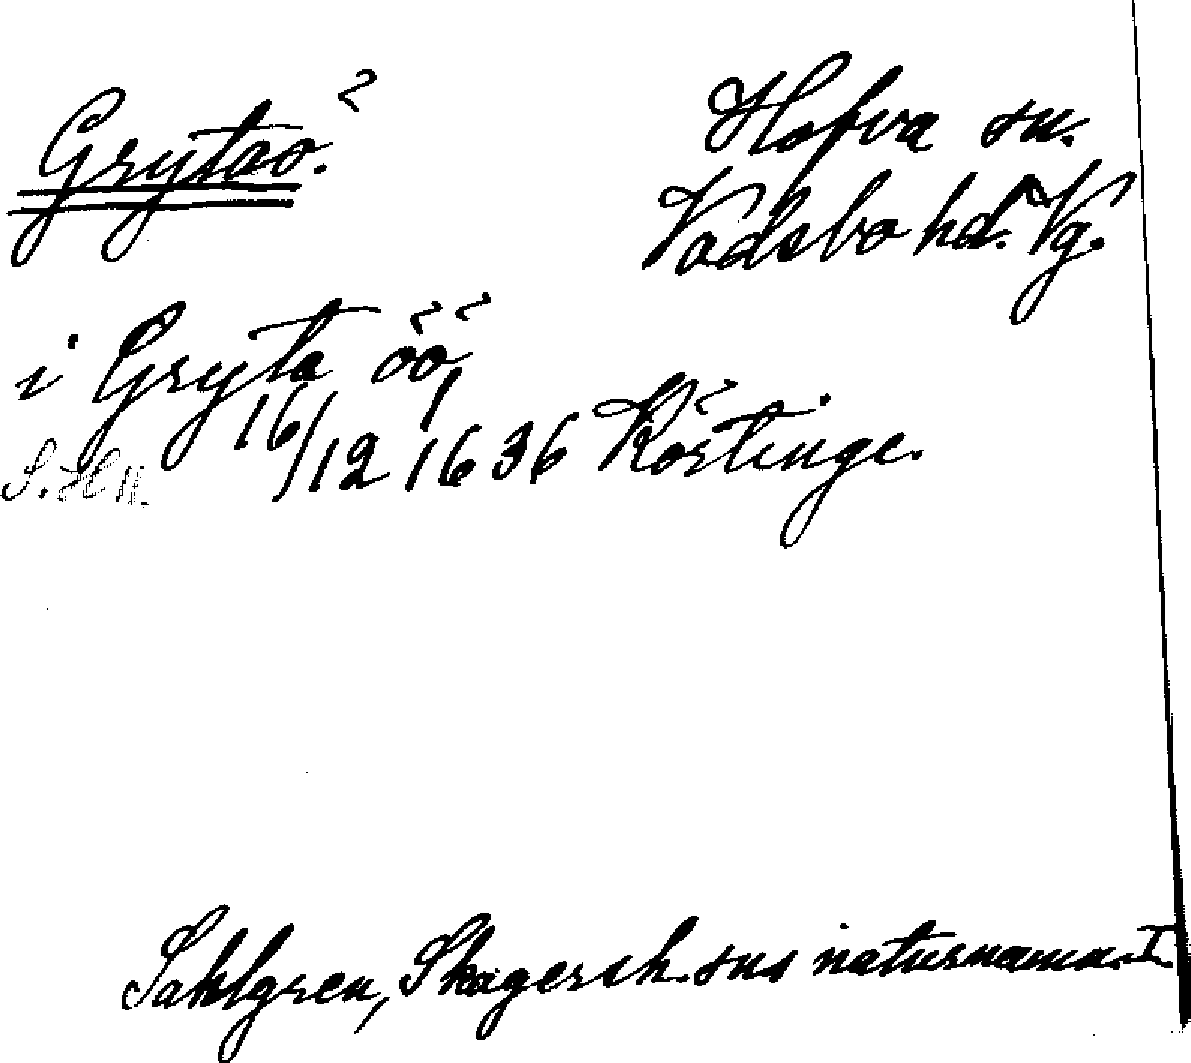 Grytaö. Hofva sn.
Vadsbo hd. Vg.
i Gryta öö,
16/12 1636 Röstinge.
S. H.
Sahlgren, Skagersh. sns naturnamn. I